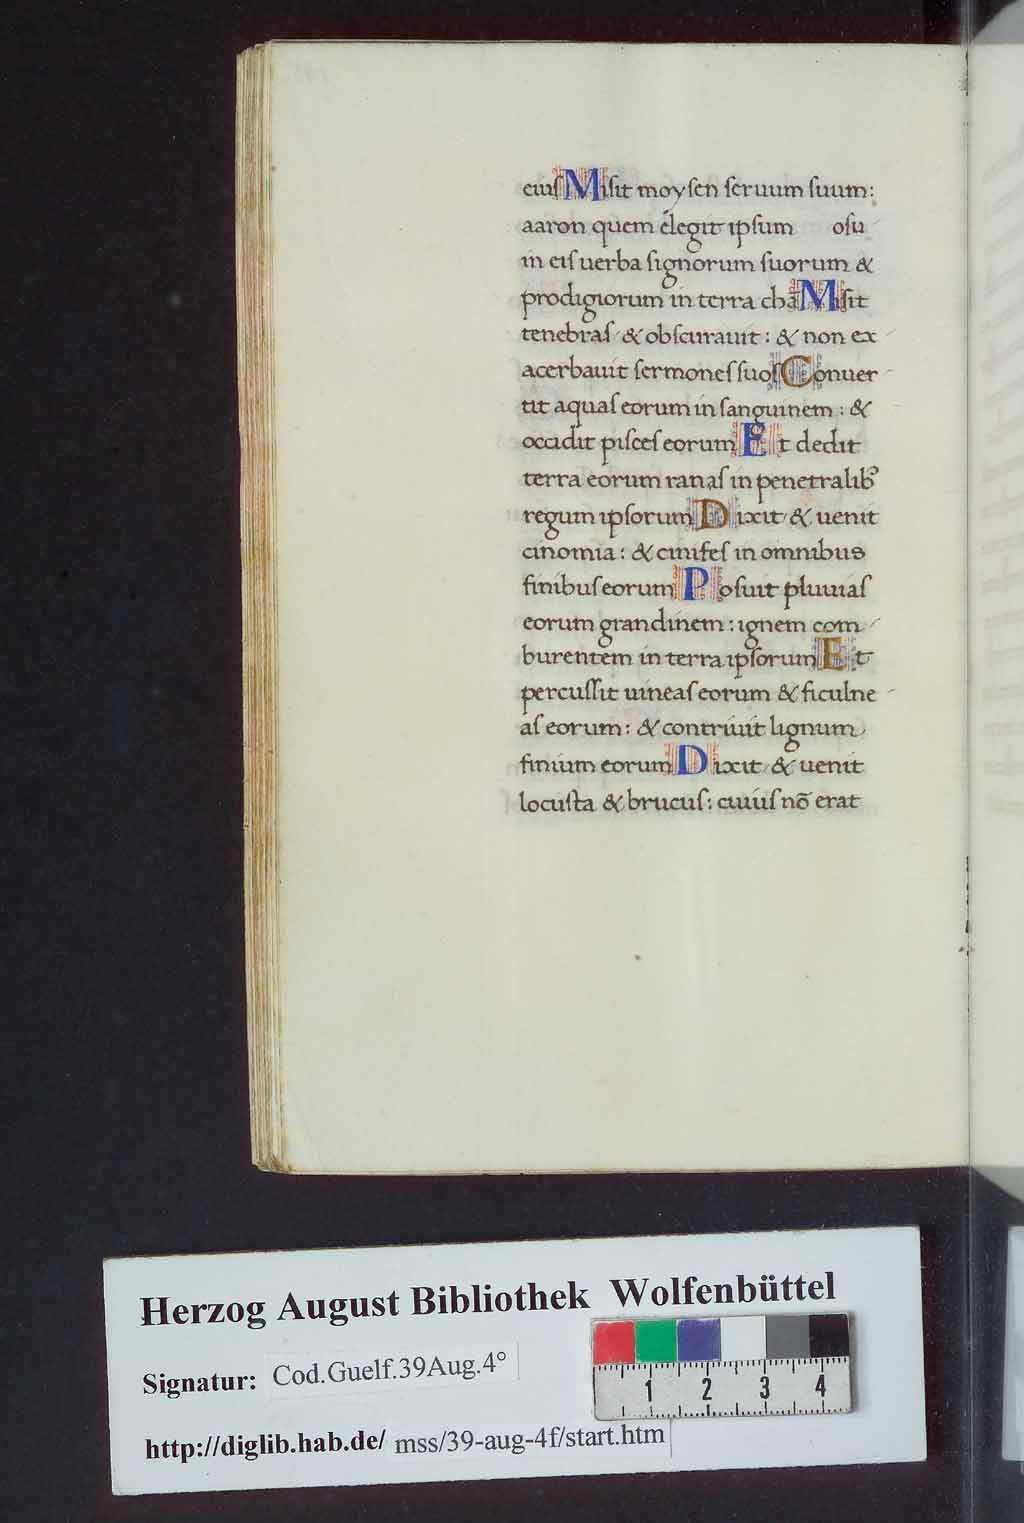 eius Misit moysen seruum suum:
aaron quem elegit ipsum osu
in eis uerba signorum suorum &
prodigiorum in terra chā Misit
tenebras & obscurauit: & non ex
acerbauit sermones suos Conuer
tit aquas eorum in sanguinem: &
occidit pisces eorum Et dedit
terra eorum ranas in penetralibꝰ
regum ipsorum Dixit & uenit
cinomia: & cinifes in omnibus
finibus eorum Posuit pluuias
eorum grandinem: ignem com
burentem in terra ipsorum Et
percussit uineas eorum & ficulne
as eorum: & contriuit lignum
finium eorum Dixit & uenit
locusta & brucus: cuius nō erat
Herzog August Bibliothek Wolfenbüttel
Signatur: Cod.Guelf.39Aug.4°
http://diglib.hab.de/ mss/39-aug-4f/start.htm
1 2 3 4